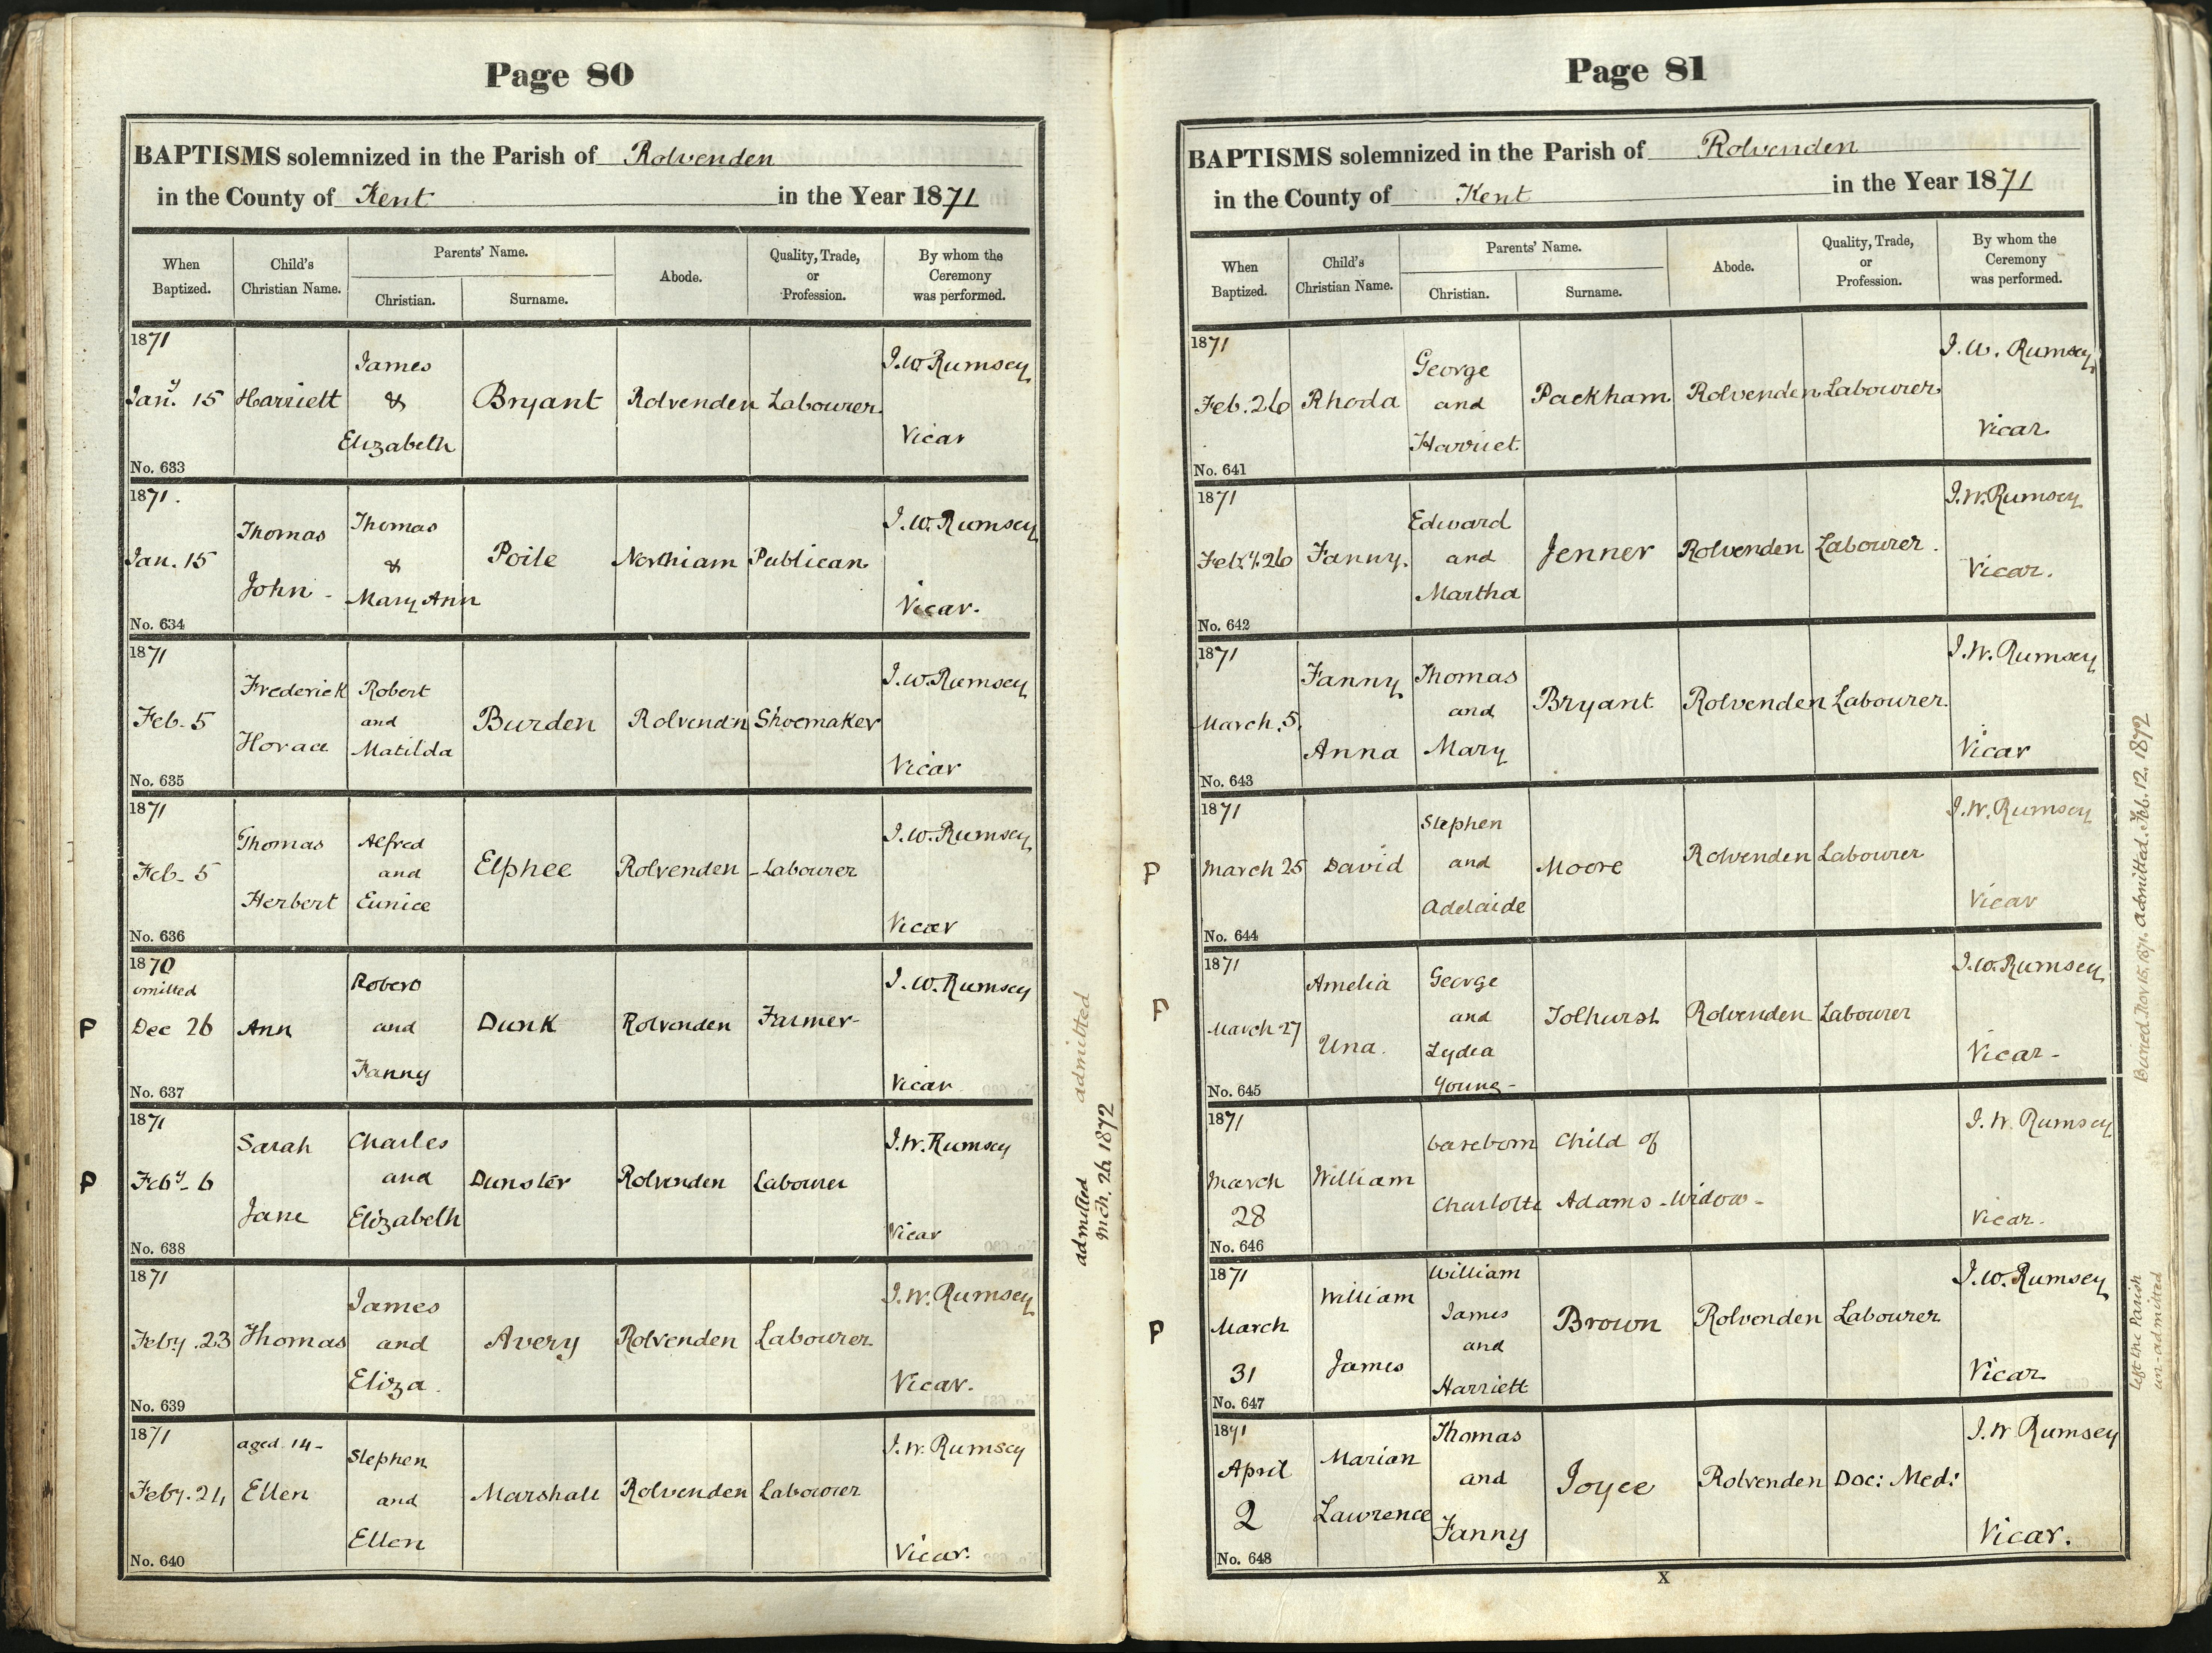 Page 80
BAPTISMS solemnized in the Parish of Rolvenden
in the County of Kent in the Year 1871
When Baptized. Child's Christian Name. Parents' Name. Christian. Surname. Abode. Quality, Trade, or Profession. By whom the Ceremony was performed.
1871
Jan.y 15 Harriett James & Elizabeth Bryant Rolvenden Labourer. J.W. Rumsey Vicar
No. 633
1871.
Jan. 15 Thomas John - Thomas & Mary Ann Poile Northiam Publican J.W. Rumsey Vicar.
No. 634
1871
Feb. 5 Frederick Horace Robert and Matilda Burden Rolvendn Shoemaker J.W. Rumsey Vicar
No. 635
1871
Feb. 5 Thomas Herbert Alfred and Eunice Elphee Rolvenden - Labourer J.W. Rumsey Vicar
No. 636
1870
omitted
P Dec 26 Ann Robert and Fanny Dunk Rolvenden Farmer- J.W. Rumsey Vicar
No. 637
admitted
1871
P Feby. 6 Sarah Jane Charles and Elizabeth Dunster Rolvenden Labourer J.W. Rumsey Vicar
No. 638
admitted
Mch. 26 1872
1871
Feby. 23 Thomas James and Eliza. Avery Rolvenden Labourer J.W. Rumsey Vicar.
No. 639
1871
Feby. 24 aged 14 - Ellen Stephen and Ellen Marshall Rolvenden Labourer J.W. Rumsey Vicar.
No. 640
Page 81
BAPTISMS solemnized in the Parish of Rolvenden
in the County of Kent in the Year 1871
When Baptized. Child's Christian Name. Parents' Name. Christian. Surname. Abode. Quality, Trade, or Profession. By whom the Ceremony was performed.
1871
Feb. 26 Rhoda George and Harriet Packham Rolvenden Labourer. J.W. Rumsey Vicar.
No. 641
1871
Feb.y. 26 Fanny. Edward and Martha Jenner Rolvenden Labourer. J.W. Rumsey Vicar.
No. 642
1871
March. 5. Fanny Anna Thomas and Mary Bryant Rolvenden Labourer. J.W. Rumsey Vicar
No. 643
1871
P March 25 David Stephen and Adelaide Moore Rolvenden Labourer J.W. Rumsey Vicar
No. 644
Buried Nov 15. 1871. Admitted. Feb. 12. 1872
1871
P March 27 Amelia Una. George and Lydia Young - Tolhurst Rolvenden Labourer J.W. Rumsey Vicar -
No. 645
1871
March 28 William baseborn Child of Charlotte Adams - Widow - J.W. Rumsey Vicar.
No. 646
1871
P March 31 William James William James and Harriett Brown Rolvenden Labourer J.W. Rumsey Vicar
No. 647
left the Parish
un-admitted
1871
April 2 Marian Lawrence Thomas and Fanny Joyce Rolvenden Doc: Med: J.W. Rumsey Vicar.
No. 648
X